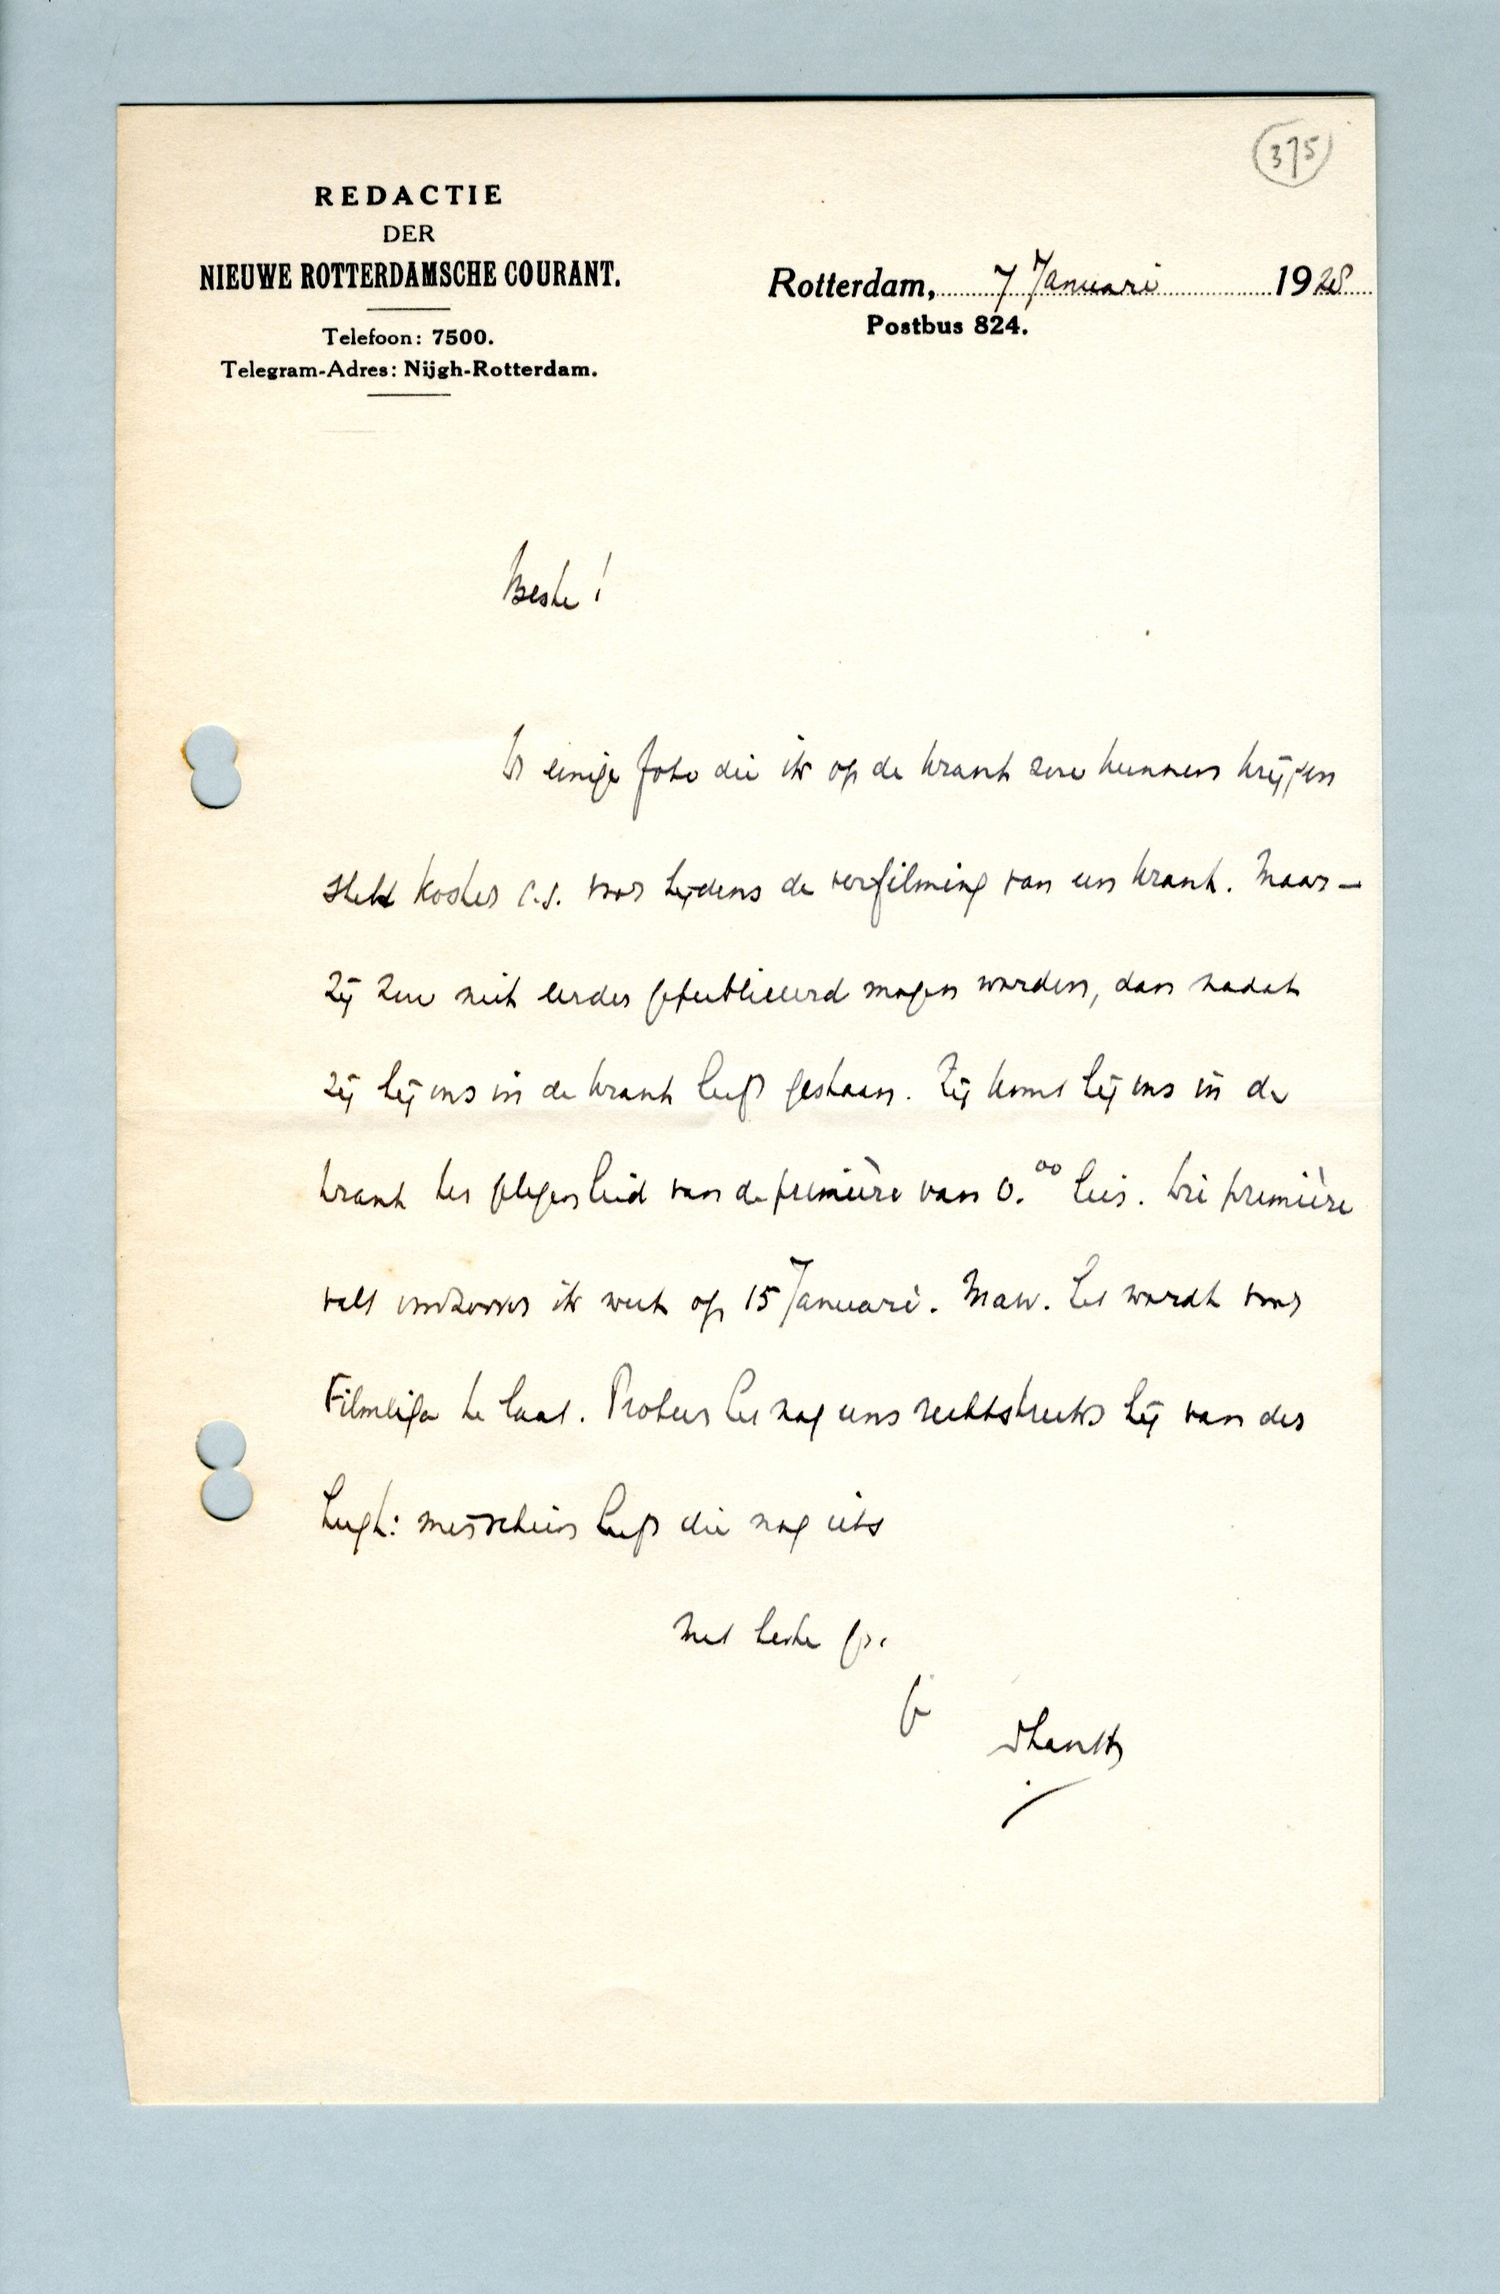 375
REDACTIE
DER
NIEUWE ROTTERDAMSCHE COURANT.
Telefoon: 7500.
Telegram-Adres: Nijgh-Rotterdam.
Rotterdam, 7 Januari 1928
Postbus 824.
Beste!
De eenige foto die ik op de krant zou kunnen krijgen
stelt Koster c.s. voor tijdens de verfilming van een krant. Maar —
zij zou niet eerder gepubliceerd mogen worden, dan nadat
zij bij ons in de krant heeft gestaan. Zij komt bij ons in de
krant ter gelegenheid van de première van o. oo huis. Die première
valt voor zoover ik weet op 15 Januari. Maw. het wordt voor
Filmliga te laat. Probeer het nog eens rechtstreeks bij van der
Lugt: misschien heeft die nog iets
Met beste gr.